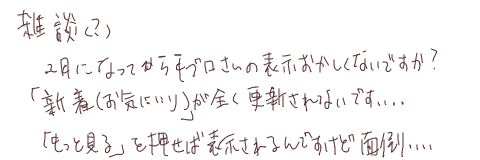 雑談(?)
2月になってから手ブロさんの表示おかしくないですか?
「新着(お気にいり)」が全く更新されないです....
「もっと見る」を押せば表示されるんですけど面倒....